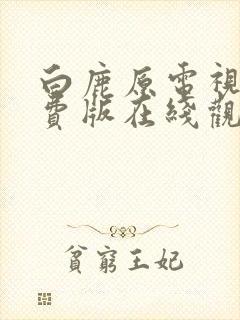 白鹿原電視
費版在綫觀
貧窮王妃